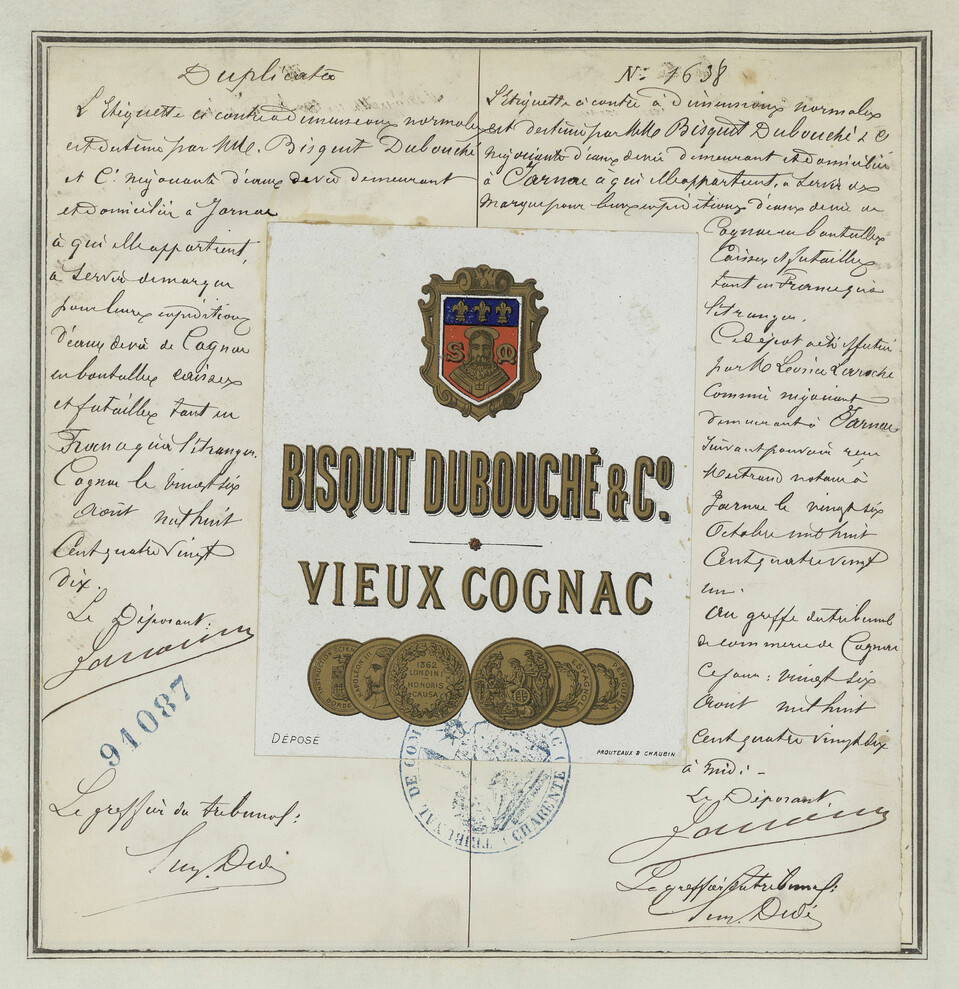 Duplicata
L'Etiquette ci contre à dimensions normales
est destinée par MM. Bisquit Dubouché
et Cie négociants d'eaux de vie demeurant
et domiciliés à Jarnac
à qui elle appartient,
à servir de marque
pour leurs expéditions
d'eaux de vie de Cognac
en bouteilles caisses
et futailles tant en
France qu'à l'étranger.
Cognac le vingt six
Août mil huit
Cent quatre vingt
dix.
Le Déposant:
91087
Le greffier du tribunal:
No: 1638
L'Etiquette ci contre à dimensions normales
est destinée par MM. Bisquit Dubouché & Cie
négociants d'eaux de vie demeurant et domiciliés
à Jarnac à qui elle appartient, à servir de
marque pour leurs expéditions d'eaux de vie de
Cognac en bouteilles
Caisses et futailles
tant en France qu'à
l'étranger.
Ce dépôt a été effectué
par M Léonce Laroche
Commis négociant
demeurant à Jarnac
suivant pouvoir reçu
notaire à
Jarnac le vingt six
Octobre mil huit
Cent quatre vingt
un.
Au greffe du tribunal
de commerce de Cognac
Ce jour: vingt six
Août mil huit
Cent quatre vingt dix
à midi -
Le Déposant.
Le greffier du tribunal:
S M
BISQUIT DUBOUCHÉ & Co.
VIEUX COGNAC
NAPOLEON III
1862
LONDINI
HONORIS
CAUSA
DÉPOSÉ
PROUTEAUX & CHAUBIN
TRIBUNAL DE COM
CHARENTE